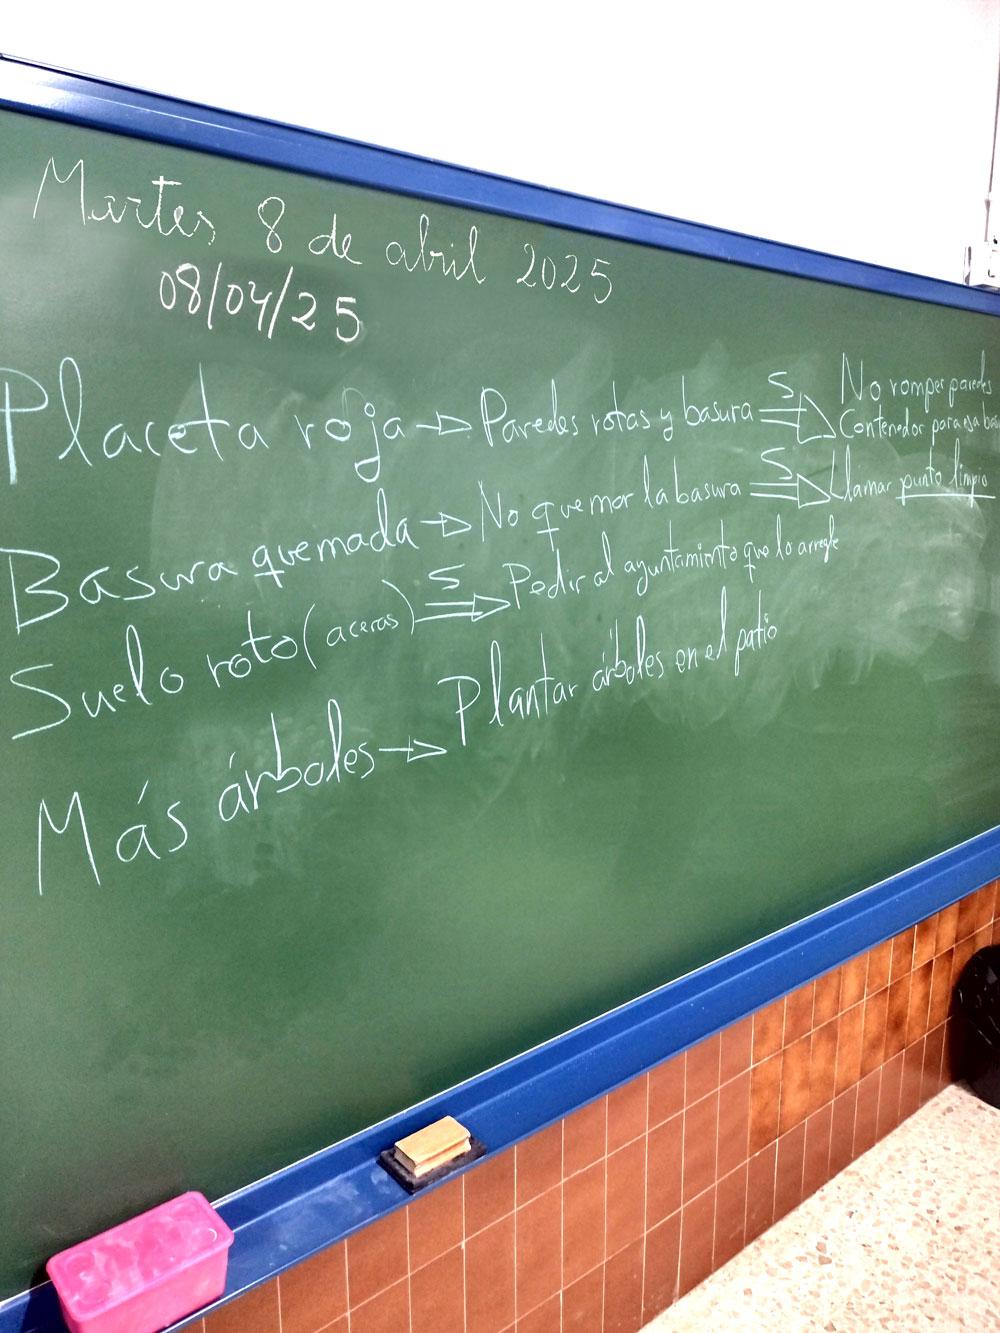 Martes 8 de abril 2025
08/04/25
Placeta roja → Paredes rotas y basura S ⇒ No romper paredes
Contenedor para esa bas
Basura quemada → No quemar la basura S ⇒ Llamar punto limpio
Suelo roto (aceras) S ⇒ Pedir al ayuntamiento que lo arregle
Más árboles → Plantar árboles en el patio